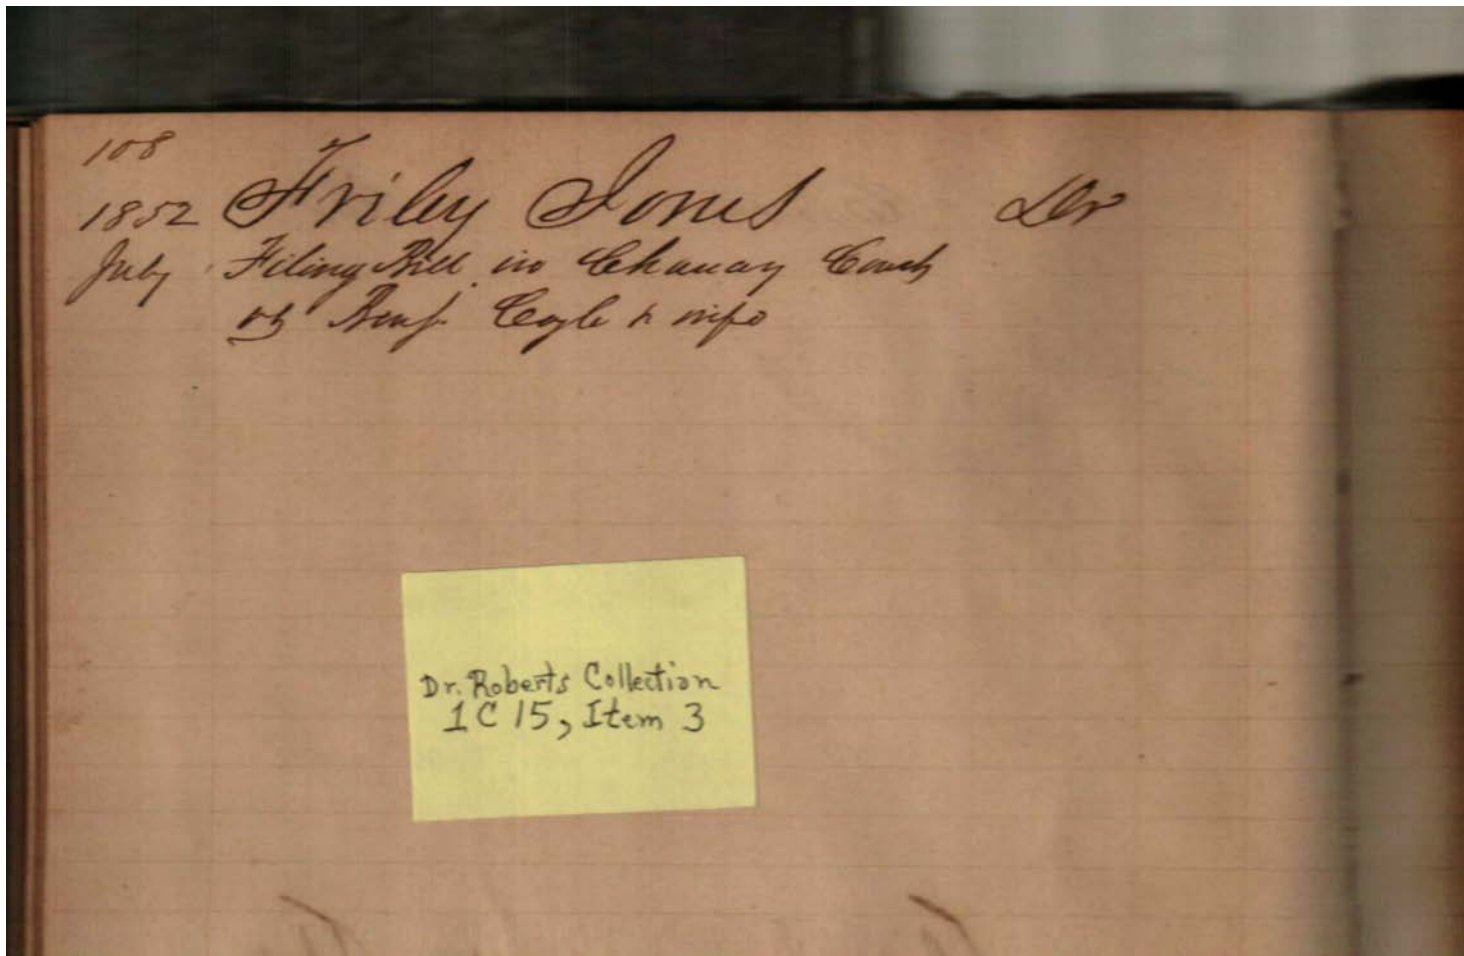 108
1852 Friley Jones Dr
July Filing Bill in Chancay Court
vs Benj. Cogle & wife
Dr. Roberts Collection
1C15, Item 3